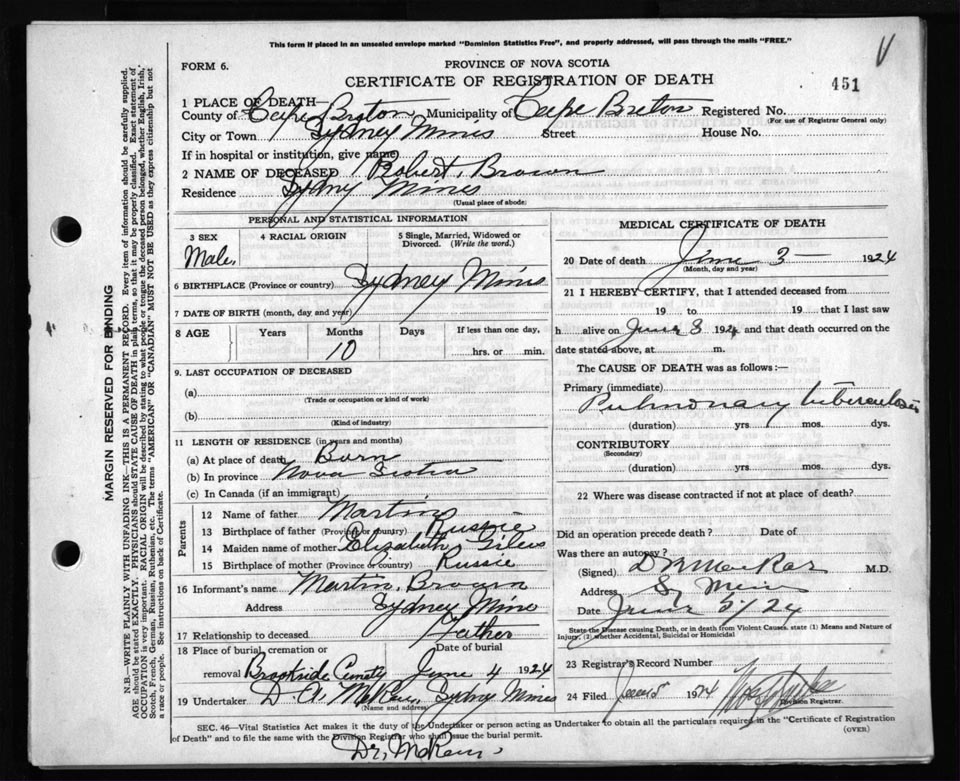 This form if placed in an unsealed envelope marked "Dominion Statistics Free", and properly addressed, will pass through the mails "FREE."
FORM 6.
PROVINCE OF NOVA SCOTIA
CERTIFICATE OF REGISTRATION OF DEATH
451
1 PLACE OF DEATH—
County of Cape Breton Municipality of Cape Breton Registered No.
(For use of Registrar General only)
City or Town Sydney Mines Street House No.
If in hospital or institution, give name)
2 NAME OF DECEASED Robert, Brown
Residence Sydny Mines
(Usual place of abode)
PERSONAL AND STATISTICAL INFORMATION
3 SEX 4 RACIAL ORIGIN 5 Single, Married, Widowed or Divorced. (Write the word.)
Male,
6 BIRTHPLACE (Province or country) Sydney Mines
7 DATE OF BIRTH (month, day and year)
8 AGE Years Months Days If less than one day,
10 hrs. or min.
9. LAST OCCUPATION OF DECEASED
(a)
(Trade or occupation or kind of work)
(b)
(Kind of industry)
11 LENGTH OF RESIDENCE (in years and months)
(a) At place of death Born
(b) In province Nova Scotia
(c) In Canada (if an immigrant)
Parents
12 Name of father Martin
13 Birthplace of father (Province or country) Russie
14 Maiden name of mother Elizabeth
15 Birthplace of mother (Province or country) Russie
16 Informant's name Martin, Brown
Address Sydney Mine
17 Relationship to deceased Father
18 Place of burial, cremation or removal Date of burial
Brookside June 4 1924
19 Undertaker D A Sydny Mines
(Name and address)
MEDICAL CERTIFICATE OF DEATH
20 Date of death June 3— 1924
(Month, day and year)
21 I HEREBY CERTIFY, that I attended deceased from
19 to 19 that I last saw
h alive on June 3 1924 and that death occurred on
date stated above, at m.
The CAUSE OF DEATH was as follows:—
Primary (immediate)
Pulmonary tuberculosis
(duration) yrs. mos. dys.
CONTRIBUTORY
(Secondary)
(duration) yrs. mos. dys.
22 Where was disease contracted if not at place of death?
Did an operation precede death? Date of
Was there an autopsy?
(Signed) M.D.
Address Sy Mines
Date June 5/24
State the Disease causing Death, or in death from Violent Causes, state (1) Means and Nature of
Injury, (2) whether Accidental, Suicidal or Homicidal
23 Registrar's Record Number
24 Filed June 5 1924
Division Registrar.
SEC. 46—Vital Statistics Act makes it the duty of the Undertaker or person acting as Undertaker to obtain all the particulars required in the "Certificate of Registration
of Death" and to file the same with the Division Registrar who shall issue the burial permit.
(OVER)
MARGIN RESERVED FOR BINDING
N.B.—WRITE PLAINLY WITH UNFADING INK—THIS IS A PERMANENT RECORD. Every item of information should be carefully supplied.
AGE should be stated EXACTLY. PHYSICIANS should STATE CAUSE OF DEATH in plain terms, so that it may be properly classified. Exact statement of
OCCUPATION is very important. RACIAL ORIGIN will be described by stating to what people or tongue the deceased person belonged, whether English, Irish,
Scotch, French, German, Russian, Ruthenian, etc. The terms "AMERICAN" OR "CANADIAN" MUST NOT BE USED as they express citizenship but not
a race or people. See instructions on back of Certificate.